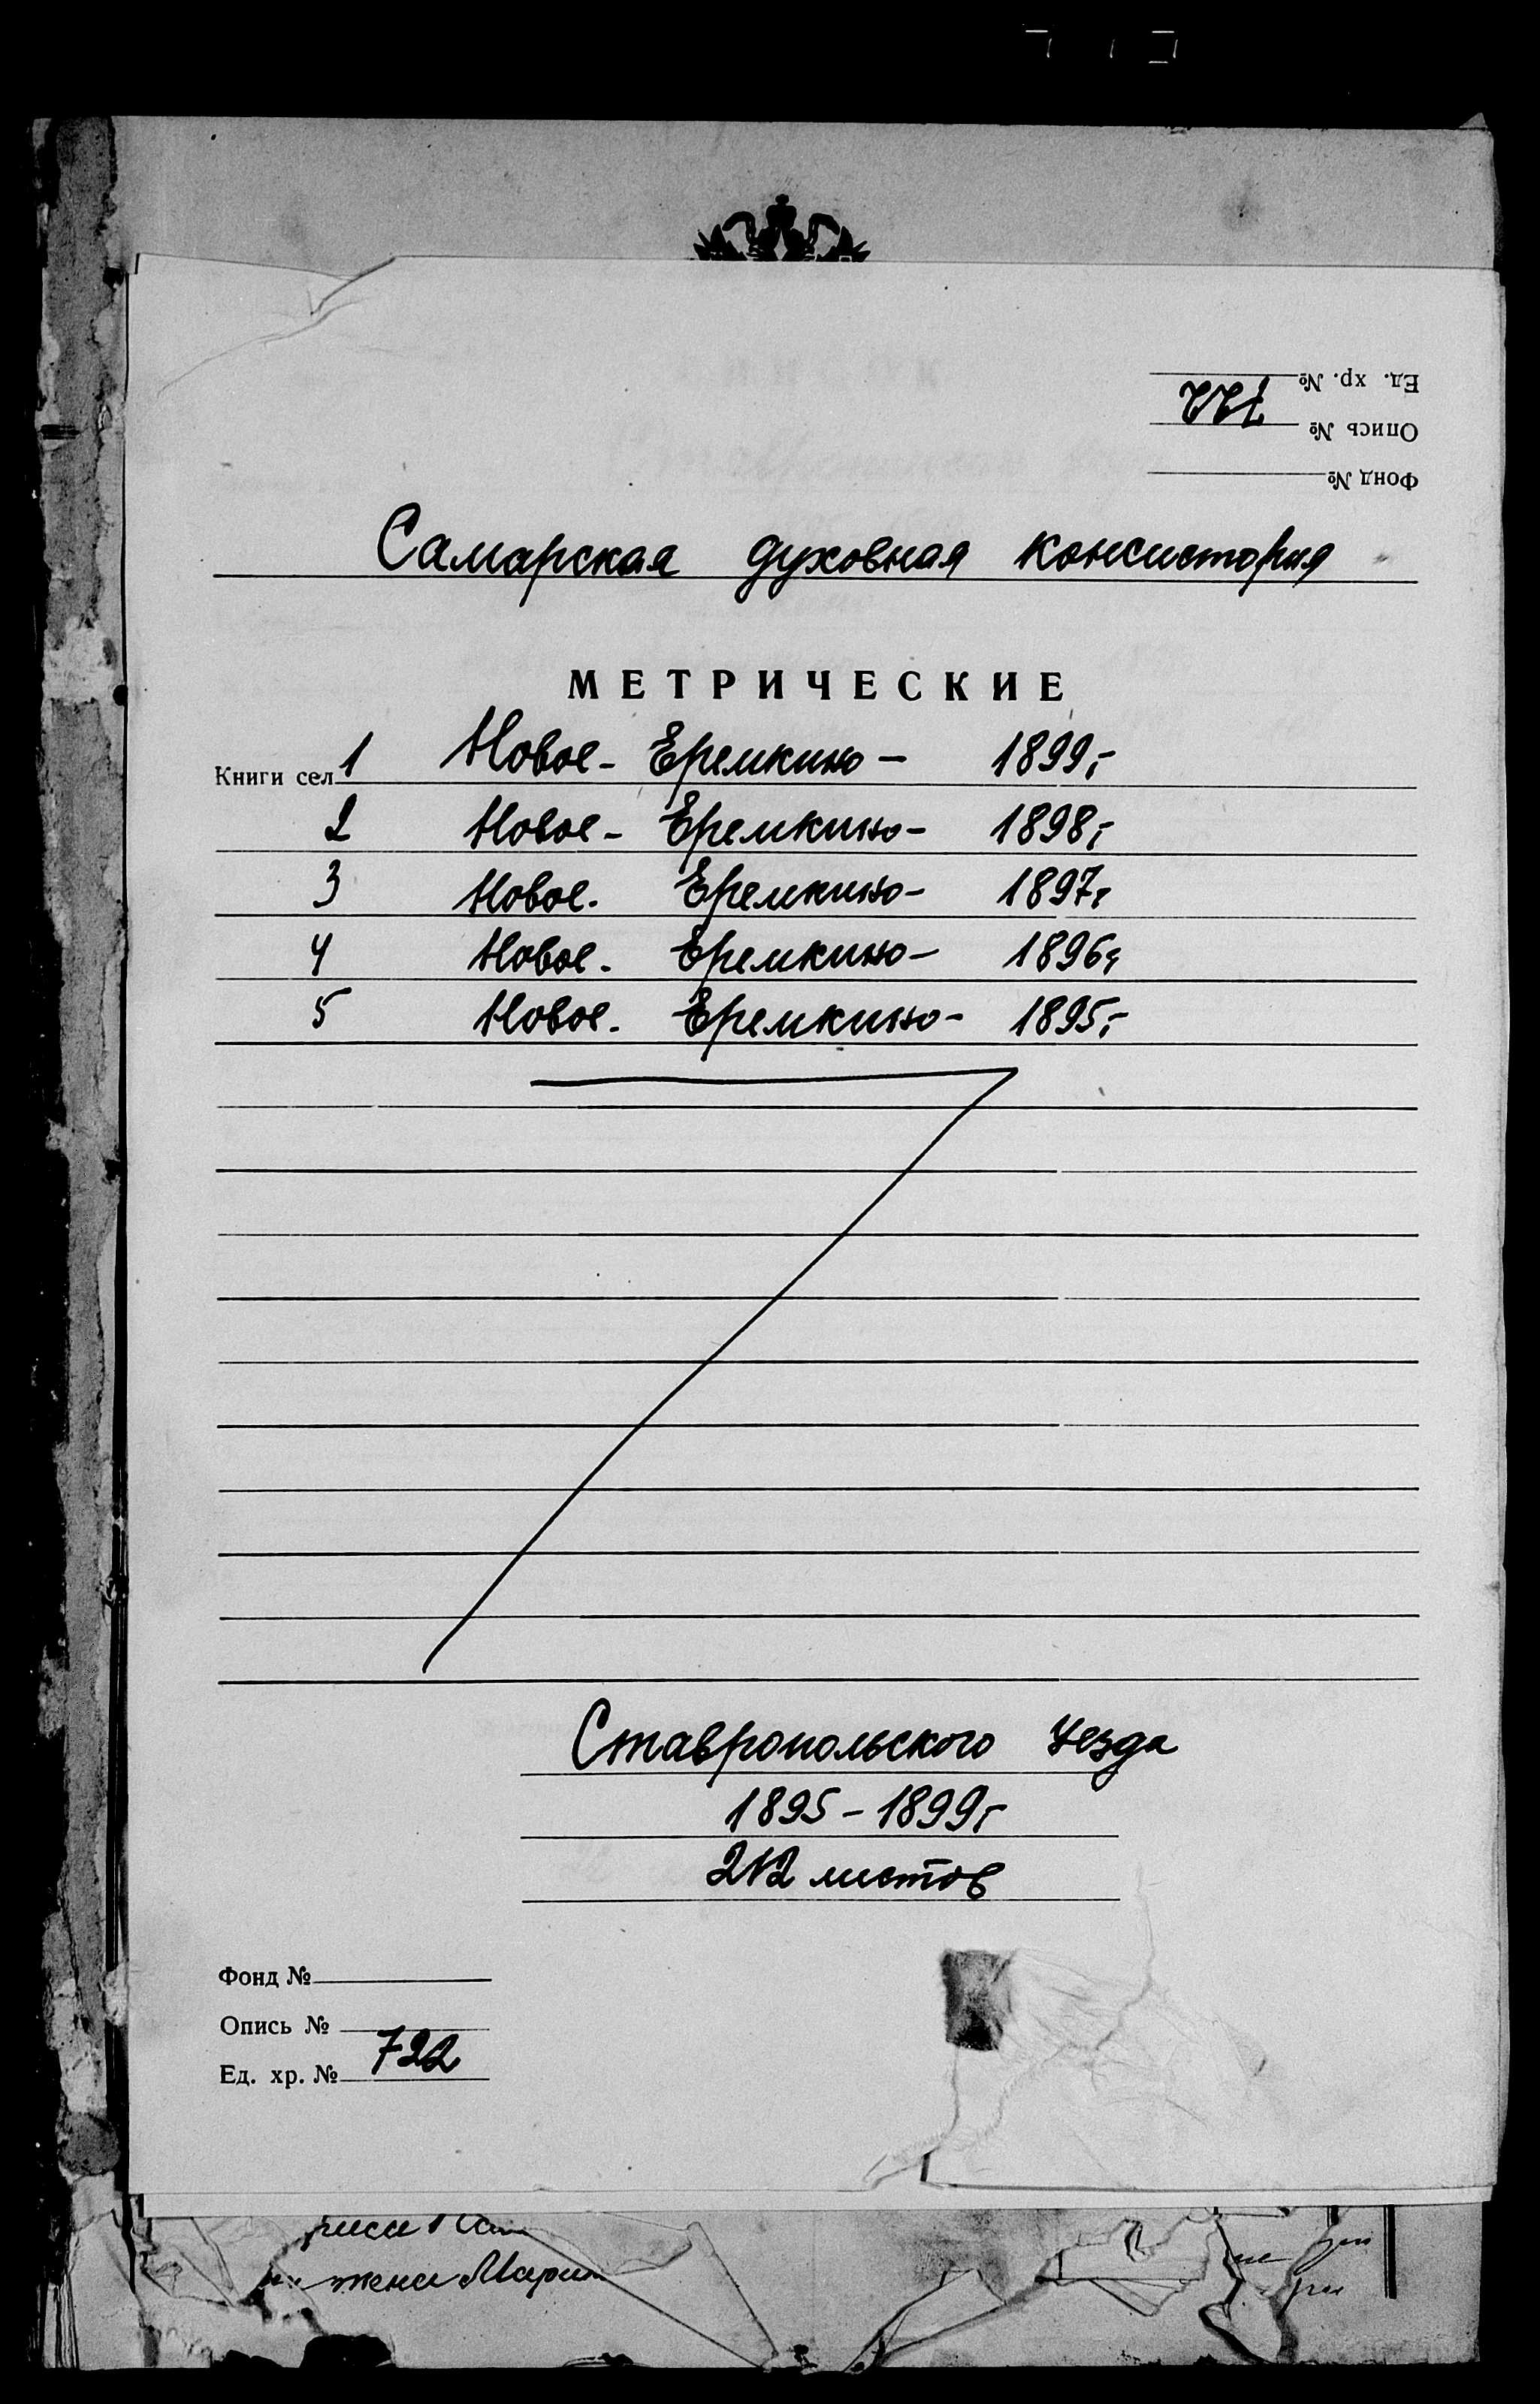 Ед. хр. №
Опись № 722
Фонд №
Самарская духовная консистория
МЕТРИЧЕСКИЕ
Книги сел 1 Новое - Еремкино - 1899г
2 Новое - Еремкино - 1898г
3 Новое - Еремкино - 1897г
4 Новое - Еремкино - 1896г
5 Новое - Еремкино - 1895г
Ставропольского уезда
1895 - 1899г
212 листов
Фонд №
Опись №
Ед. хр. № 722
жена Мария